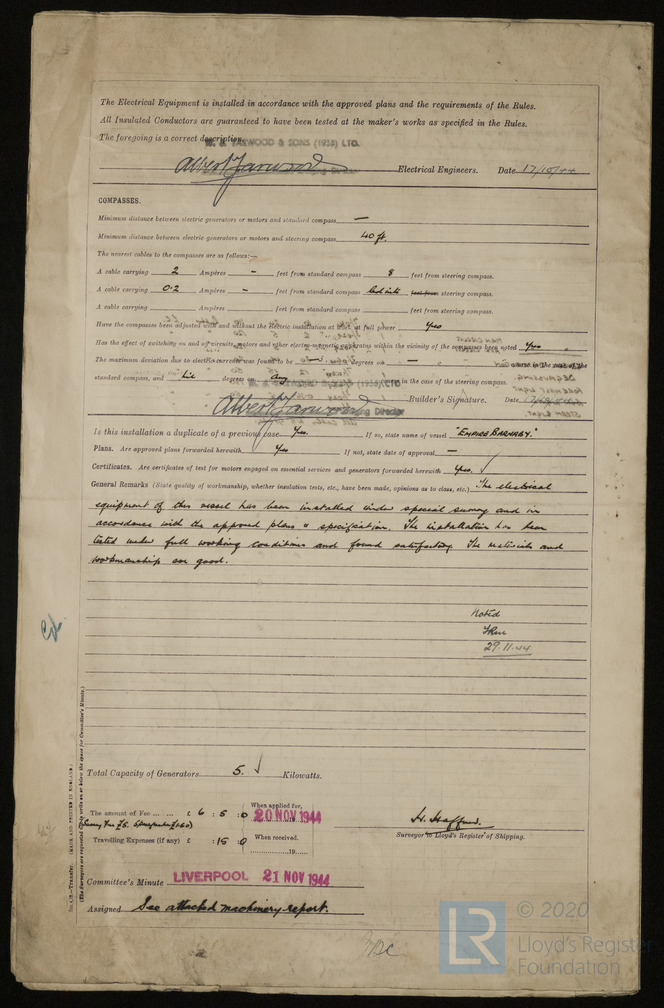 The Electrical Equipment is installed in accordance with the approved plans and the requirements of the Rules.
All Insulated Conductors are guaranteed to have been tested at the maker's works as specified in the Rules.
The foregoing is a correct description.
YARWOOD & SONS (1938) LTD.
Albert Yarwood Electrical Engineers. Date 17/10/44
COMPASSES.
Minimum distance between electric generators or motors and standard compass —
Minimum distance between electric generators or motors and steering compass 40 ft.
The nearest cables to the compasses are as follows:—
A cable carrying 2 Ampères - feet from standard compass 8 feet from steering compass.
A cable carrying 0.2 Ampères - feet from standard compass led into feet from steering compass.
A cable carrying Ampères feet from standard compass feet from steering compass.
Have the compasses been adjusted with and without the electric installation at work at full power Yes
Has the effect of switching on and off circuits, motors and other electro-magnetic apparatus within the vicinity of the compasses been noted Yes
The maximum deviation due to electric currents was found to be — degrees on — course in the case of the
standard compass, and Nil degrees on Any course in the case of the steering compass.
Albert Yarwood Builder's Signature. Date
Is this installation a duplicate of a previous case Yes. If so, state name of vessel "EMPIRE BARNABY."
Plans. Are approved plans forwarded herewith Yes If not, state date of approval —
Certificates. Are certificates of test for motors engaged on essential services and generators forwarded herewith Yes. ✓
General Remarks (State quality of workmanship, whether insulation tests, etc., have been made, opinions as to class, etc.) The electrical
equipment of this vessel has been installed under special survey and in
accordance with the approved plans & specification. The installation has been
tested under full working conditions and found satisfactory. The materials and
workmanship are good.
Noted
29.11.44
Total Capacity of Generators 5. ✓ Kilowatts.
The amount of Fee ... ... £ 6 : 5 : 0 When applied for, 20 NOV 1944
Travelling Expenses (if any) £ : 15 : 0 When received. 19
Surveyor to Lloyd's Register of Shipping.
Committee's Minute LIVERPOOL 21 NOV 1944
Assigned See attached machinery report.
(MADE AND PRINTED IN ENGLAND.)
(The Surveyors are requested not to write on or below the space for Committee's Minute.)
© 2020
LR Lloyd's Register
Foundation